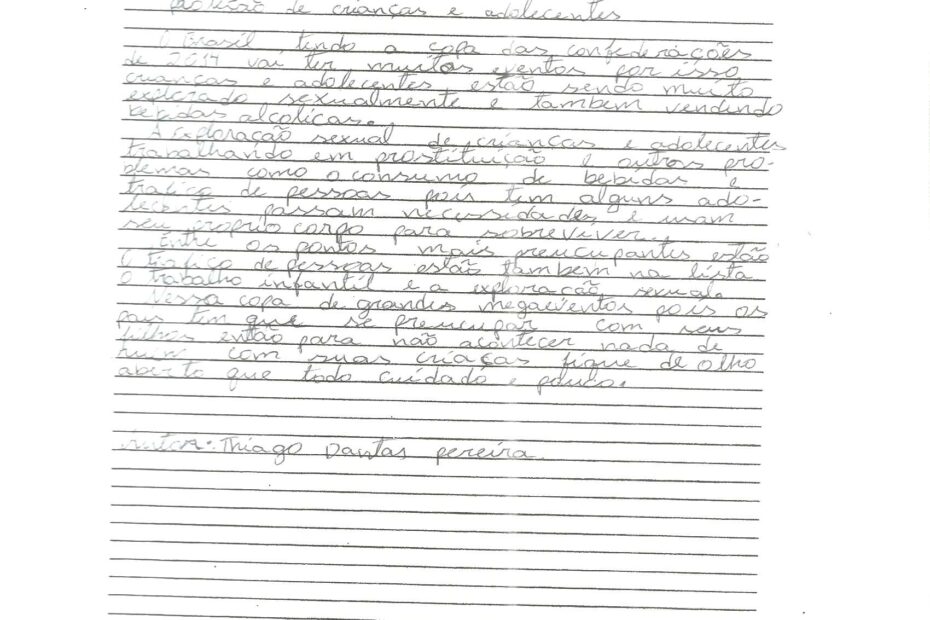 proteção de crianças e adolecentes
O Brasil tendo a copa das confederações
de 2014 vai ter muitos eventos por isso
crianças e adolecentes estão sendo muito
explorado sexualmente e tambem vendindo
bebidas alcolicas.
A exploração sexual de crianças e adolecentes
trabalhando em prostituição e outros pro-
blemas como o consumo de bebidas e
trafico de pessoas pois tem alguns ado-
lecentes passam necessidades e usam
seu proprio corpo para sobreviver.
Entre os pontos mais preucupantes estão
O trafico de pessoas estão tambem na lista
o trabalho infantil e a exploração sexual.
Nessa copa de grandes megaeventos pois os
pais tem que se preucupar com seus
filhos então para não acontecer nada de
ruim com suas criaças fique de olho
aberto que todo cuidado e pouco.
Autor: Thiago Dantas pereira.